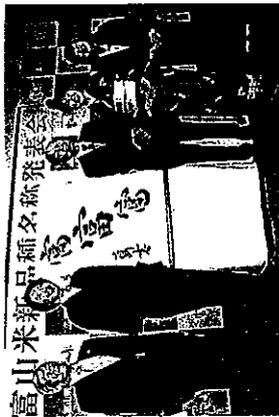 富山米新品種名称発表会
富富富